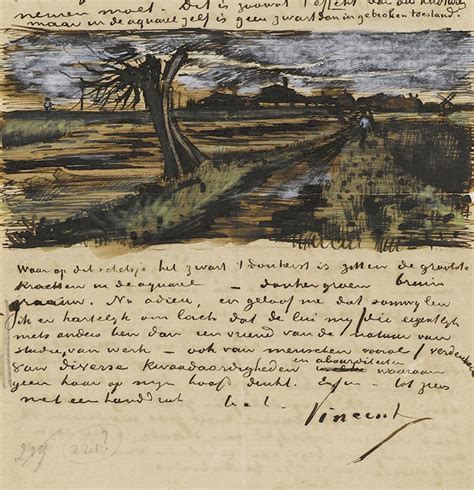 nemen moet. Dit is zoowat 't effekt van die
maar in de aquarel zelf is geen zwart dan in gebroken toestand.
Waar op dit schetsje het zwart 't donkerst is zitten de grootste
krachten in de aquarel – donkergroen bruin
graauw. Nu adieu, en geloof me dat somwijlen
ik er hartelijk om lach dat de lui mij die eigentlijk
niets anders ben dan een vriend van de natuur van
studie, van werk – ook van menschen vooral verdenken
van diverse kwaadaardigheden en absurditeiten waaraan
geen haar op mijn hoofd denkt. Enfin – tot ziens
met een handdruk
Vincent